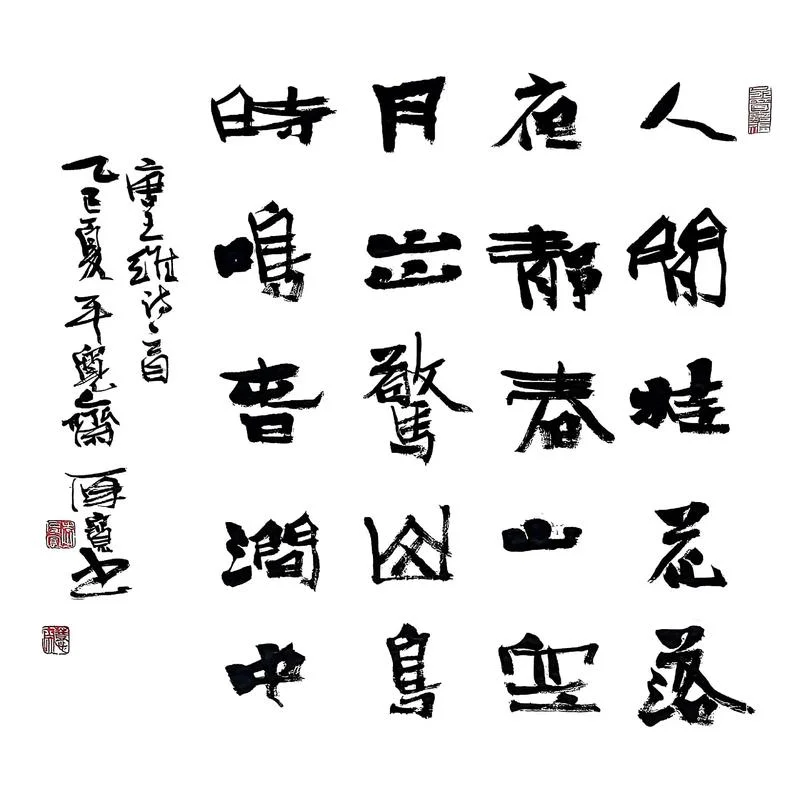 人間桂花落
夜靜春山空
月出驚山鳥
時鳴春澗中
唐王維诗一首
乙巳夏平齋寶书